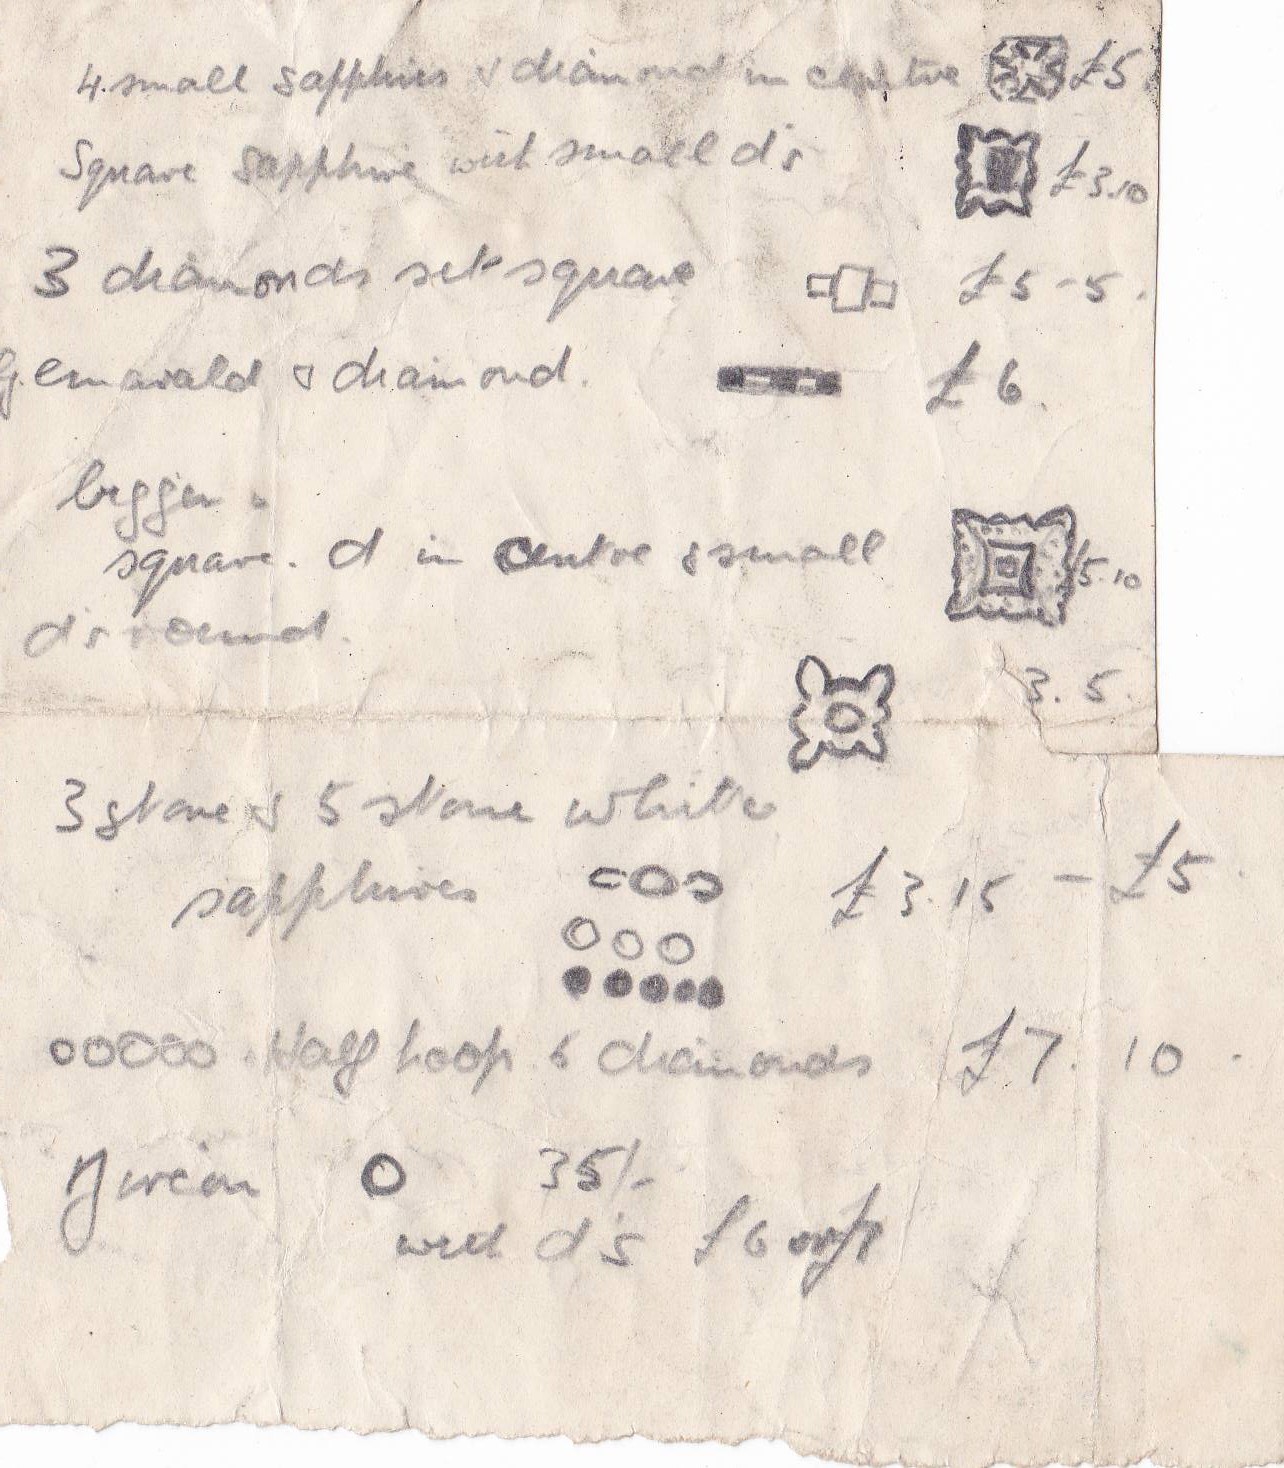 4 small sapphires & diamond in centre £5.
Square sapphire with small d's £3.10
3 diamonds set square £5-5.
emarald & diamond. £6.
bigger
square. d in centre & small £5.10
d's round.
3.5.
3 stone & 5 stone white
sapphires £3.15 - £5.
Half hoop. 5 diamonds £7.10.
35/-
with d's £6